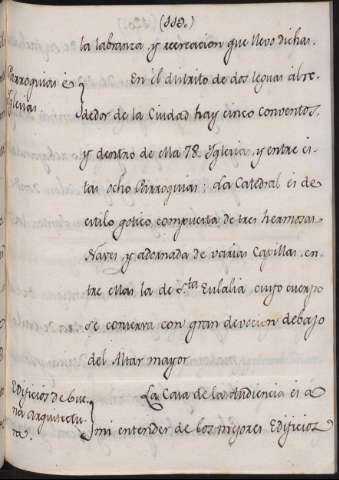 (119.)
la labranza, y recreacion que llevo dichas.
Parroquias é
Iglesias.
En el distrito de dos leguas alre-
dedor de la Ciudad hay cinco conventos,
y dentro de ella 78. Iglesias, y entre es-
tas ocho Parroquias: La Catedral es de
estilo gotico compuesta de tres hermosas
Naves, y adornada de varias Capillas, en-
tre ellas la de S.ta Eulalia, cuyo cuerpo
se conserva con gran devocion debajo
del Altar mayor.
Edificios de bue-
na arquitectu-
ra.
La Casa de la Audiencia es a
mi entender de los mejores Edificios